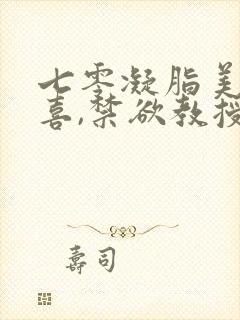 七零凝脂美
喜,禁欲教授
壽司